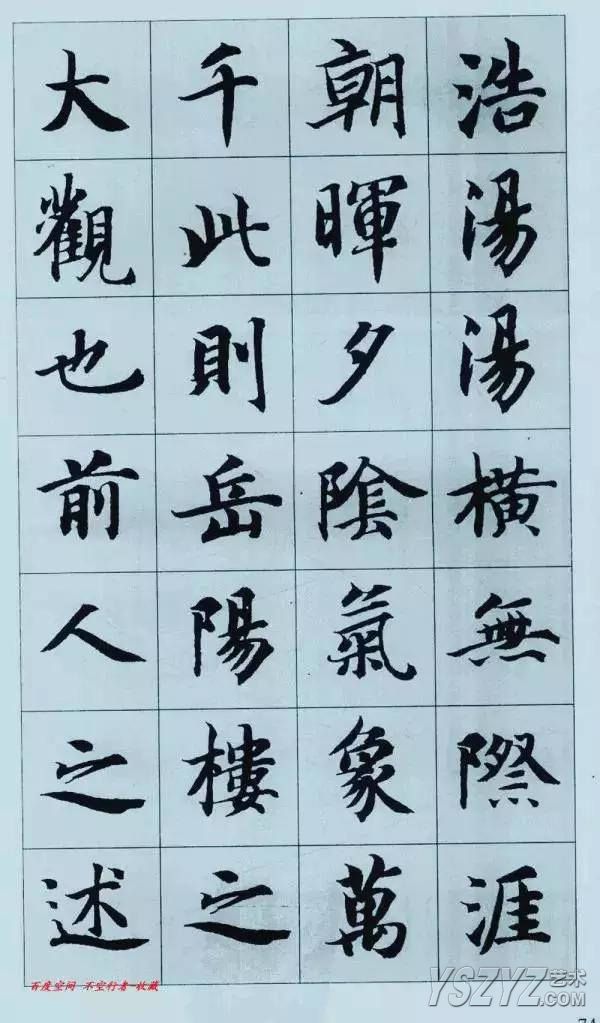 浩湯湯橫無際涯
朝暉夕陰氣象萬
千此則岳陽樓之
大觀也前人之述
百度空间 不空行者-收藏
YSZYZ艺术
.com